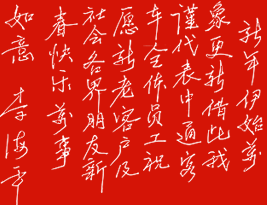 新年伊始万
象更新借此我
谨代表申通客
车全体员工祝
愿新老客户及
社会各界朋友新
春快乐万事
如意 李海平